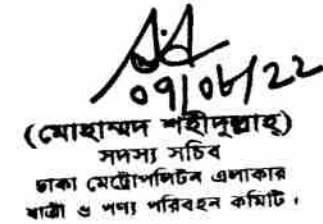 ০৭/০৮/২২
(মোহাম্মদ শহীদুল্লাহ্)
সদস্য সচিব
ঢাকা মেট্রোপলিটন এলাকার
যাত্রী ও পণ্য পরিবহন কমিটি।